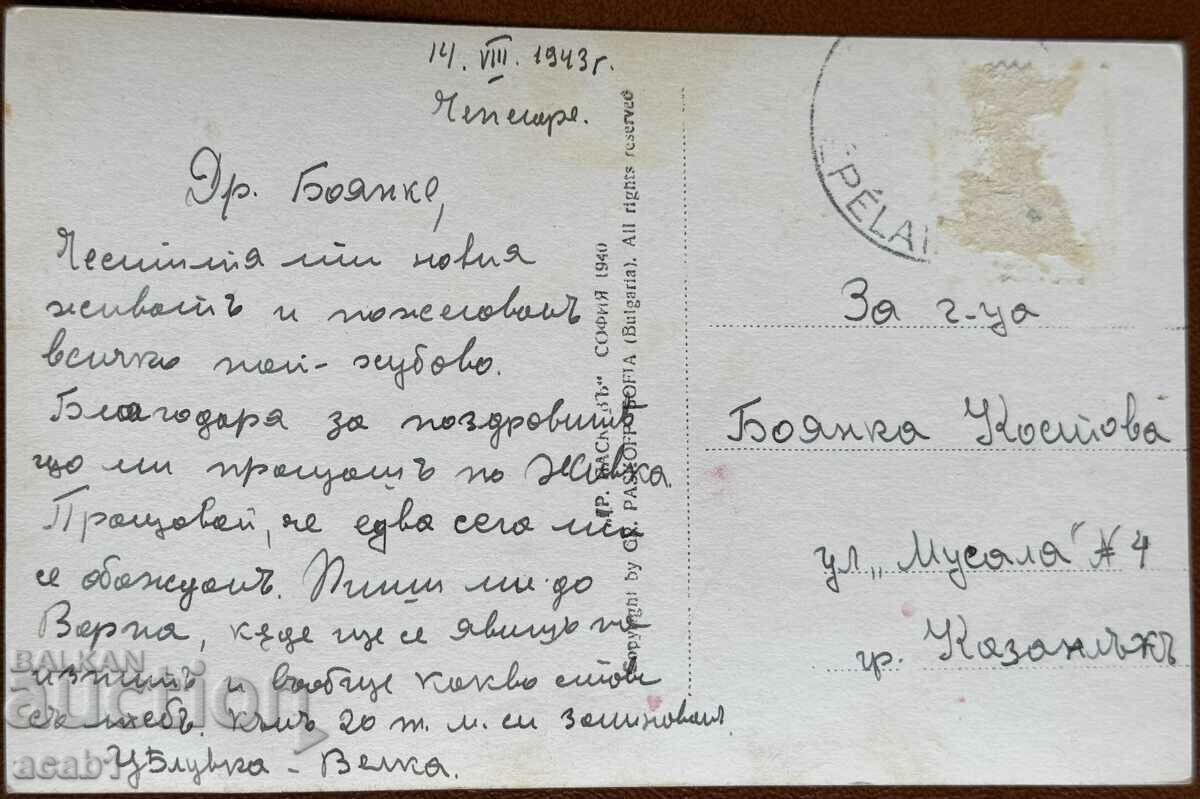 14. VIII. 1943 г.
Чепеларе.
Др. Боянке,
Честитя ти новия
животъ и пожелавамъ
всичко най-хубаво.
Благодаря за поздравитѣ
що ми пращашъ по Живка.
Прощавай, че едва сега ти
се обаждамъ. Пиши ми до
Варна, кѫде ще се явишъ на
изпитъ и въобще какво става
съ тебъ. Къмъ 20 т. м. си заминавамъ.
Цѣлувка - Велка.
ГР. ПАСКОВЪ" СОФИЯ 1940
Copyright by GR. PASKOFF SOFIA (Bulgaria). All rights reserved
ÉPÉLAR
За г-ца
Боянка Костова
ул „Мусала" № 4
гр. Казанлъкъ
BALKAN
auction
acab1